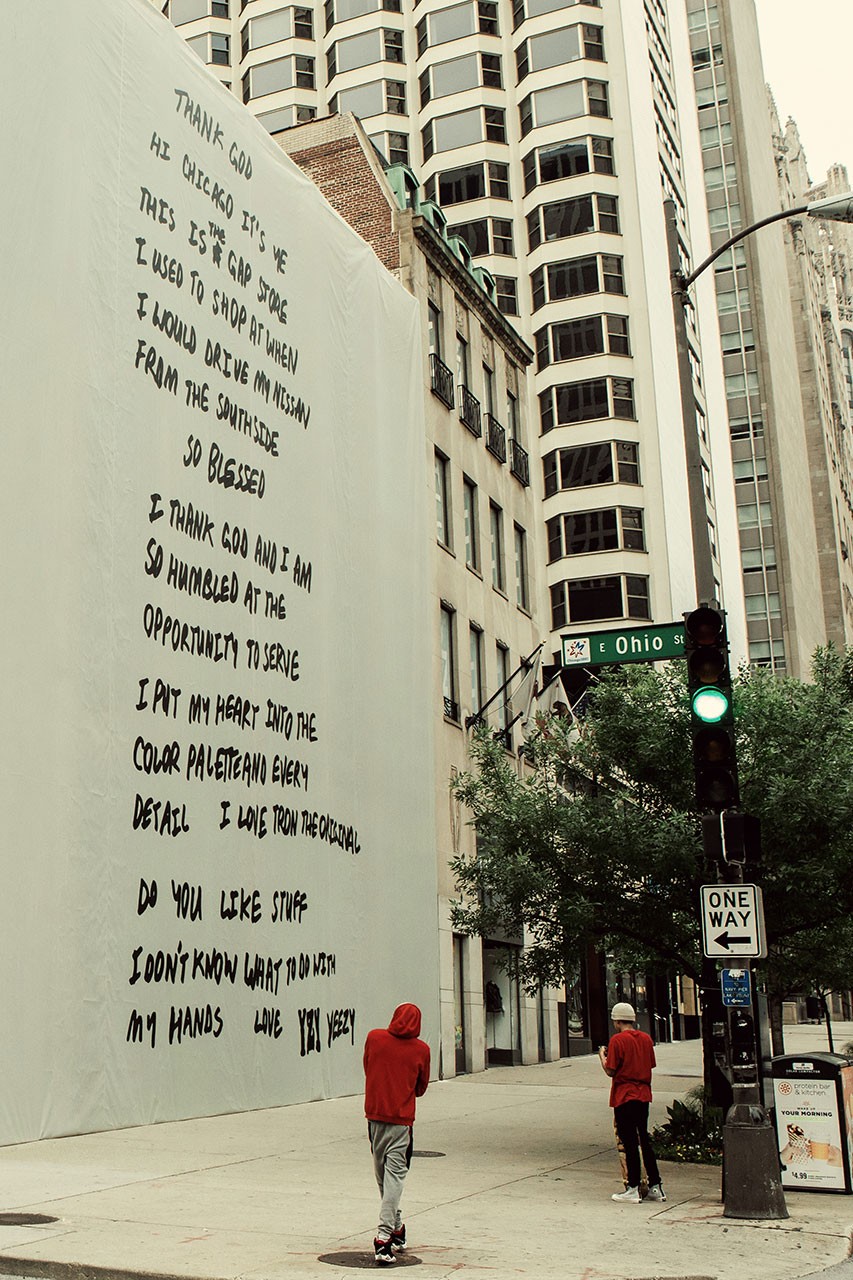 THANK GOD
HI CHICAGO IT'S YE
THIS IS THE GAP STORE
I USED TO SHOP AT WHEN
I WOULD DRIVE MY NISSAN
FROM THE SOUTHSIDE
SO BLESSED
I THANK GOD AND I AM
SO HUMBLED AT THE
OPPORTUNITY TO SERVE
I PUT MY HEART INTO THE
COLOR PALETTE AND EVERY
DETAIL I LOVE TRON THE ORIGINAL
DO YOU LIKE STUFF
I DON'T KNOW WHAT TO DO WITH
MY HANDS LOVE YZY YEEZY
E Ohio St
ONE
WAY
NAVY PIER
protein bar
& kitchen
WAKE UP
YOUR MORNING
$4.99